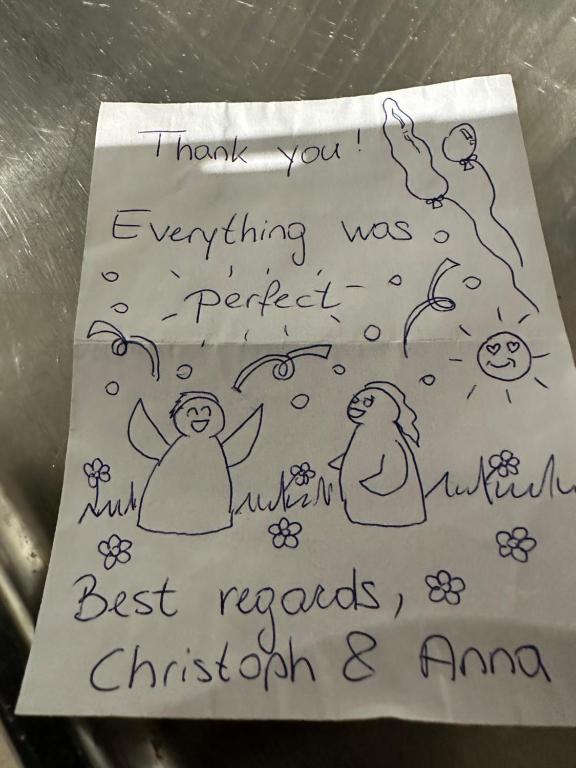 Thank you!
Everything was
perfect
Best regards,
Christoph & Anna